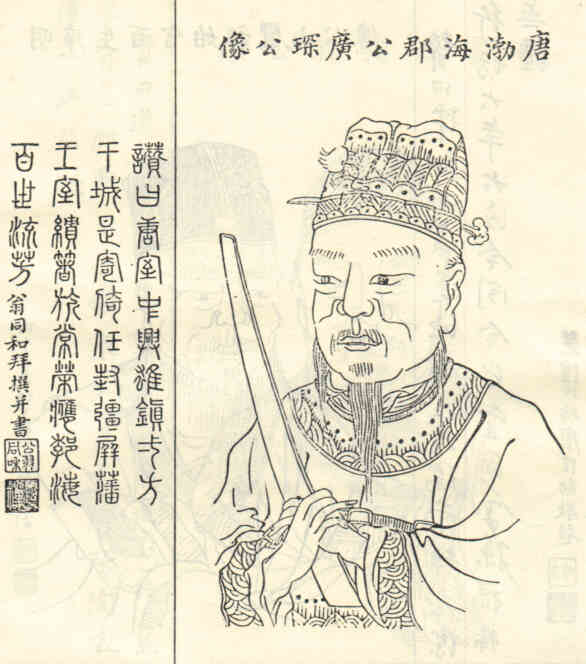 唐渤海郡公廣琛公像
讚曰唐室中興雄鎮方
干城是寄倚任封疆屏藩
王室績著旂常榮膺勃海
百世流芳
翁同和拜撰并書